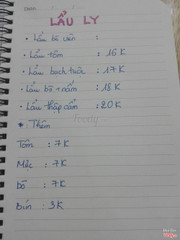 LẨU LY
• Lẩu bò viên :
• Lẩu tôm : 16K
• Lẩu bạch tuộc : 17K
• Lẩu bò + nấm : 18K
• Lẩu thập cẩm : 20K
• Thêm
Tôm : 7K
Mực : 7K
bò : 7K
Bún : 3K